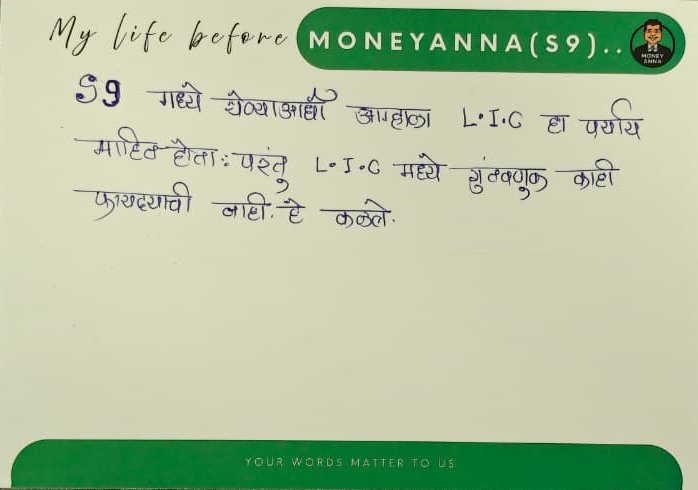 My life before MONEYANNA(S9)..
MONEY ANNA
S9 मध्ये येण्याआधी आम्हाला L.I.C हा पर्याय
माहित होता: परंतु L.I.C मध्ये गुंतवणुक काही
फायदयाची नाही. हे कळले.
YOUR WORDS MATTER TO US